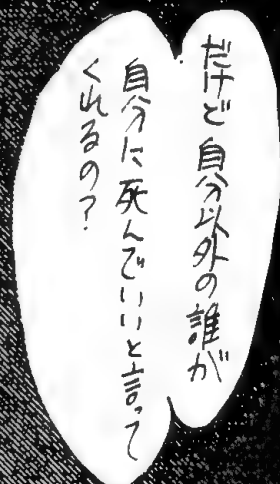 だけど自分以外の誰が
自分に死んでいいと言って
くれるの？